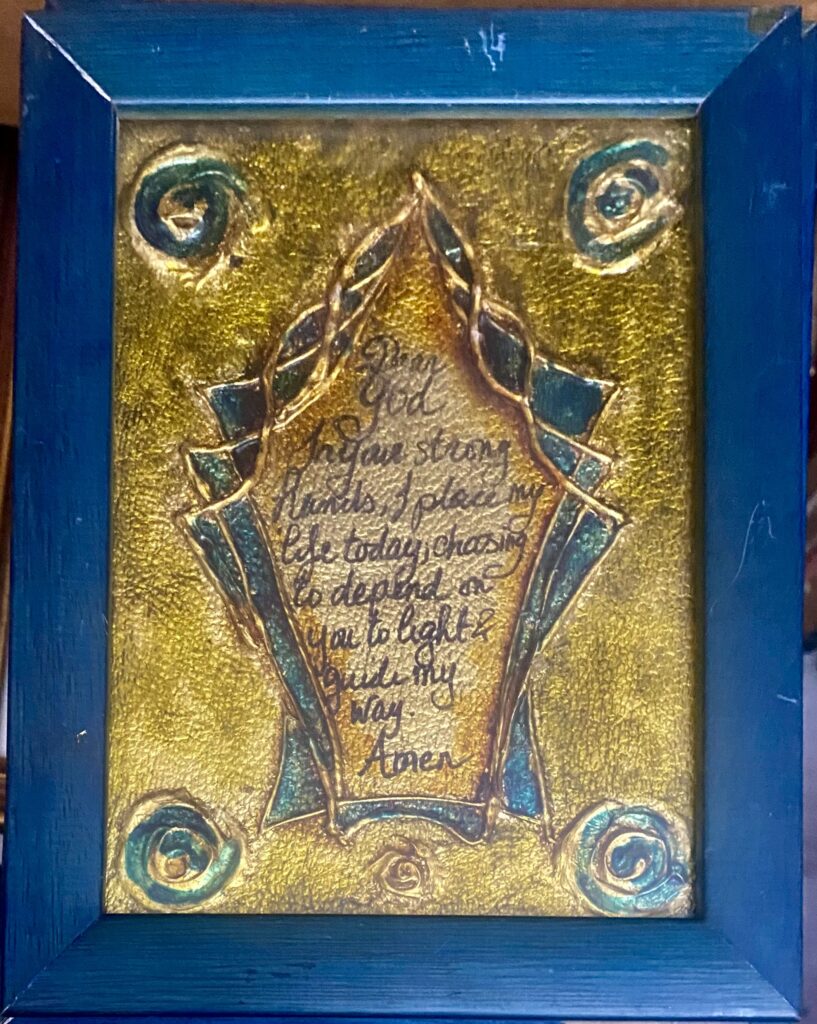 Dear
God
In your strong
hands, I place my
life today, choosing
to depend on
you to light &
guide my
way.
Amen